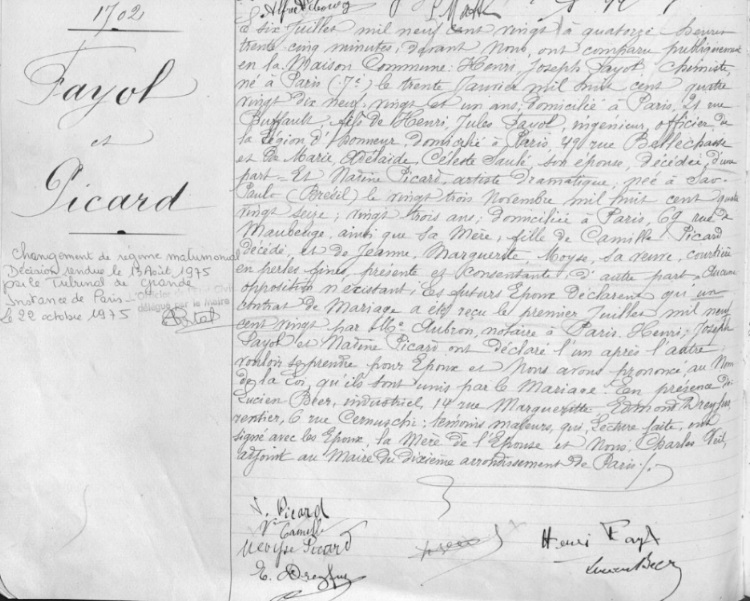 1702
Fayol
et
Picard
Changement de régime matrimonial
Décision rendue le 13 Août 1975
par le Tribunal de Grande
Instance de Paris -
délégué par le Maire
le 22 octobre 1975
six Juillet mil neuf cent vingt à quatorze heures
trente cinq minutes, devant Nous, ont comparu publiquement
en la Maison Commune: Henri, Joseph Fayol, chimiste,
né à Paris (7e) le trente Janvier mil huit cent quatre
vingt dix neuf, vingt et un ans, domicilié à Paris, 21 rue
Buffault, fils de Henri, Jules Fayol, ingénieur, officier de
la Légion d'Honneur, domicilié à Paris, 49 rue Bellechasse
et de Marie, Adélaïde, Céleste Saulé, son épouse, décédée, d'une
part = Et Nadine Picard, artiste dramatique, née à Sao-
Paulo (Brésil) le vingt trois Novembre mil huit cent quatre
vingt seize, vingt trois ans, domiciliée à Paris, 69 rue de
Maubeuge, ainsi que sa Mère, fille de Camille Picard
décédé, et de Jeanne, Marguerite, Moyse, sa veuve, courtière
en perles fines, présente et consentante, d'autre part. Aucune
opposition n'existant, les futurs Epoux déclarent qu'un
contrat de Mariage a été reçu le premier Juillet mil neuf
cent vingt par Me Aubron, notaire à Paris. Henri, Joseph
Fayol et Nadine Picard ont déclaré l'un après l'autre
vouloir se prendre pour Epoux et Nous avons prononcé, au Nom
de la Loi, qu'ils sont unis par le Mariage. En présence de:
Lucien Beer, industriel, 14 rue Margueritte, Edmond Dreyfus
rentier, 6 rue Cernuschi: témoins majeurs, qui, lecture faite, ont
signé avec les Epoux, la Mère de l'Epouse et Nous, Charles Veil,
adjoint au Maire du dixième arrondissement de Paris ./.
N. Picard
Vve Camille
Moyse Picard
E. Dreyfus
Henri Fayol
Lucien Beer